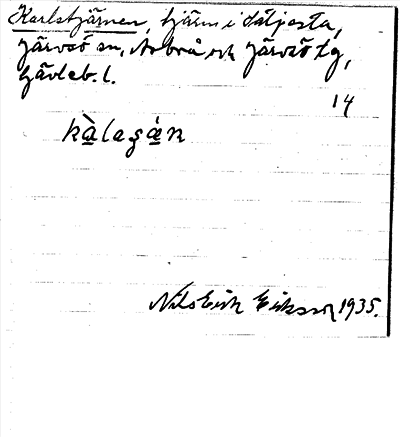 Karlstjärnen, tjärn i Säljesta,
Järvsö sn, Arbrå och Järvsö tg,
Gävleb. l.
14
kàlasǻn
Nils Erik Eriksson 1935.